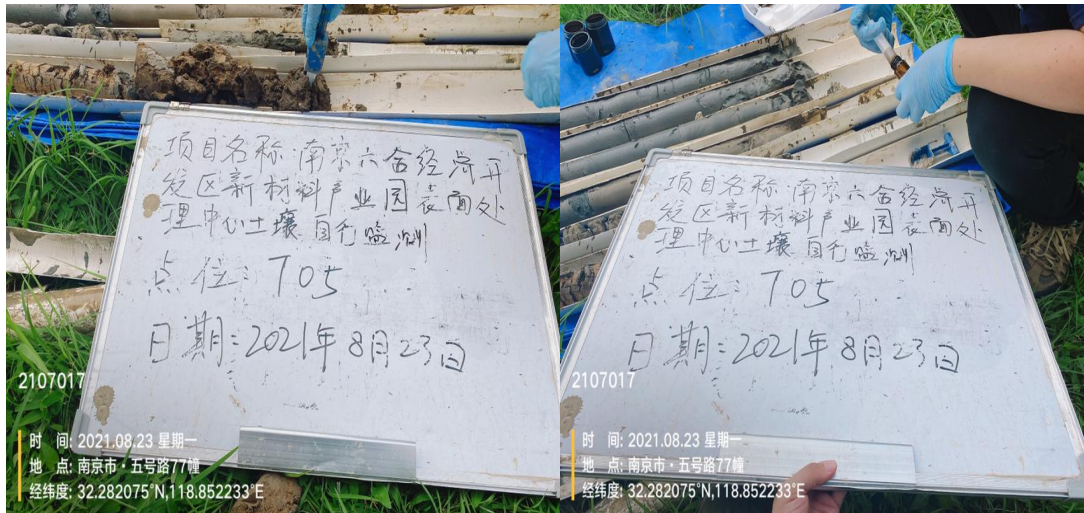 项目名称:南京六合经济开
发区新材料产业园表面处
理中心土壤自行监测
点位:T05
日期:2021年8月23日
2107017
时 间: 2021.08.23 星期一
地 点: 南京市·五号路77幢
经纬度: 32.282075°N,118.852233°E
项目名称:南京六合经济开
发区新材料产业园表面处
理中心土壤自行监测
点位:T05
日期:2021年8月23日
2107017
时 间: 2021.08.23 星期一
地 点: 南京市·五号路77幢
经纬度: 32.282075°N,118.852233°E